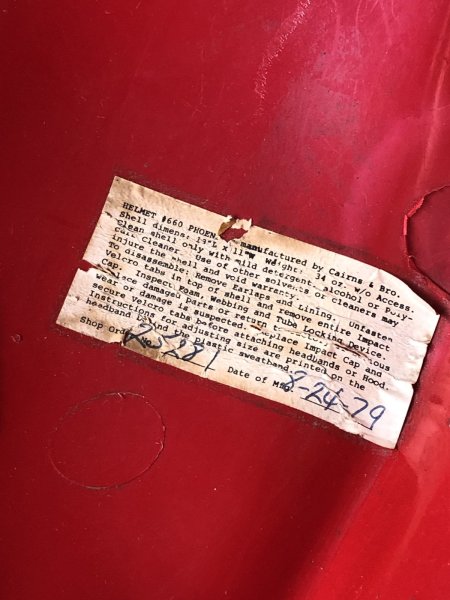 HELMET #660 PHOEN manufactured by Cairns & Bro.
Shell dimens: Weight: 34 oz. w/o Access.
Clean shell only with mild detergent or poly-
Cleaner. Use of other solvents, alcohol or Cleaners may
injure the shell and void warranty.
To disassemble: Remove Earlaps and Lining. Unfasten
Velcro tabs in top of shell and remove entire Impact
Cap. Inspect Foam, Webbing and Tube Locking Device.
Replace damaged parts or Replace Impact Cap and
wear or damage is suspected.
secure Velcro tabs before attaching headbands or Hood.
Instructions for adjusting size are printed on the
headband behind the plastic sweatband.
Shop Order No. 25281 Date of Mfg. 8-24-79